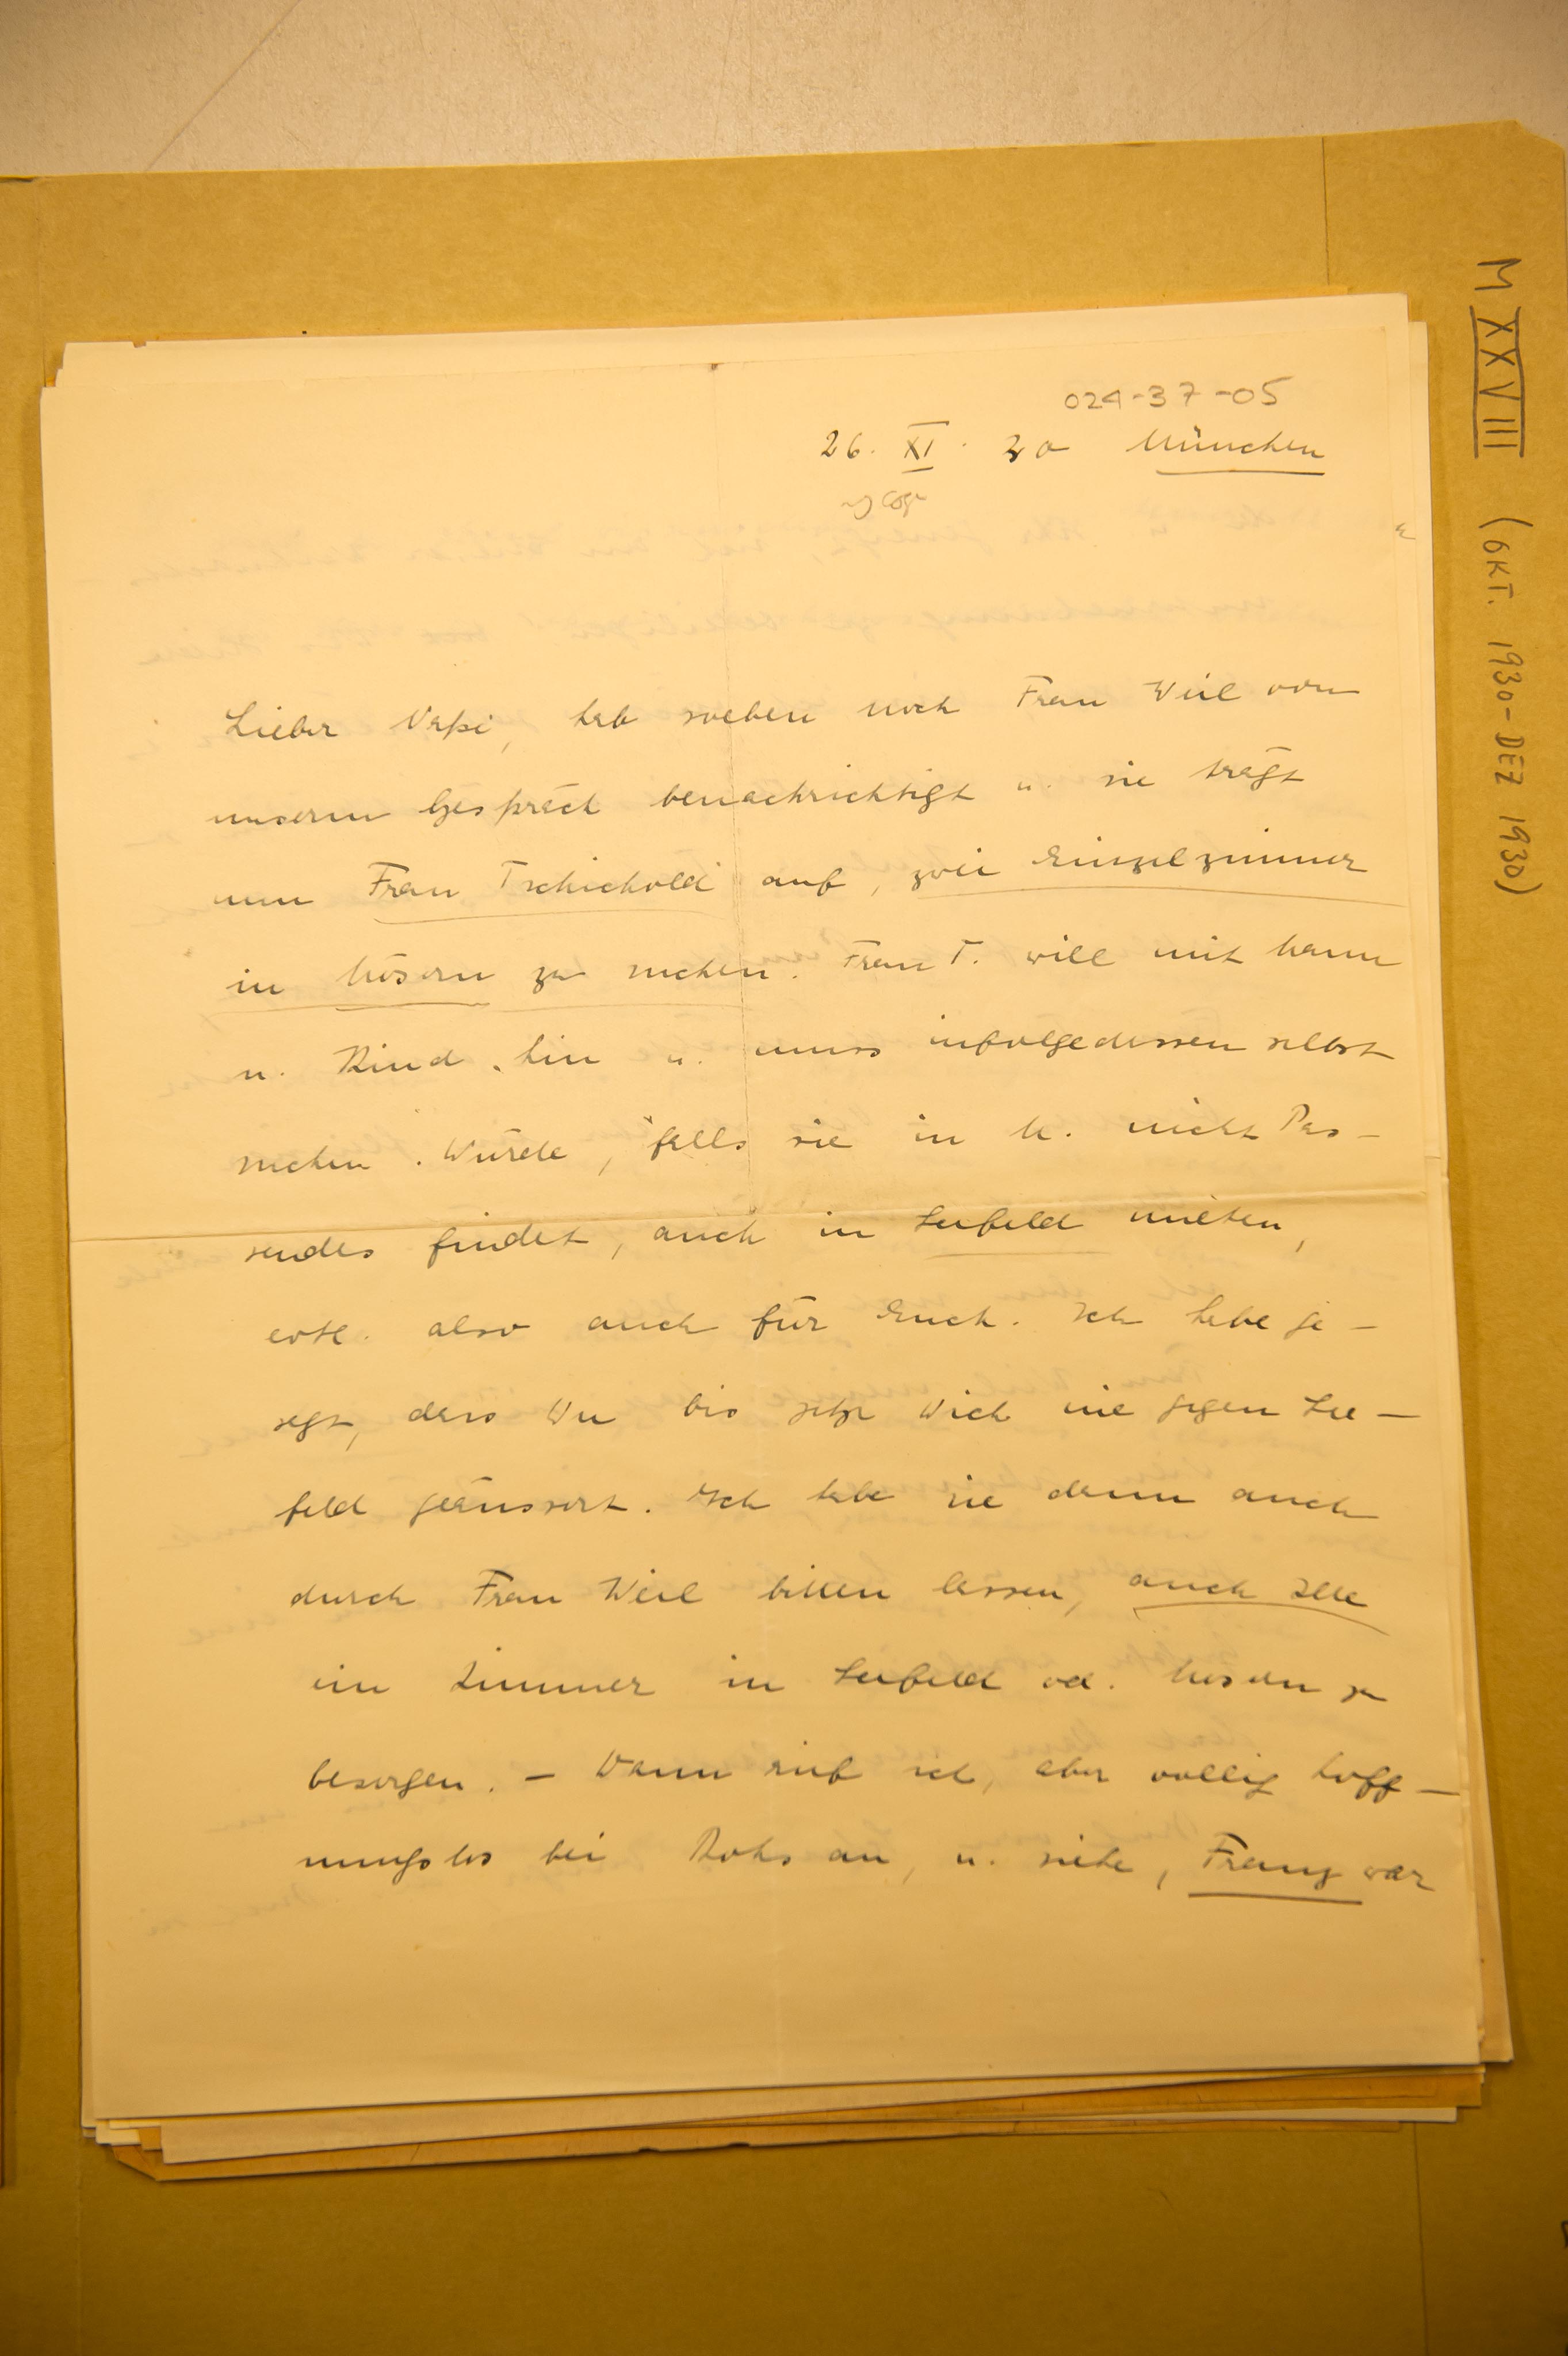 024-37-05
26. XI. 30 München
Lieber Vapi, hab soeben noch Frau Weil von
unserm Gespräch benachrichtigt u. sie trägt
nun Frau Tschichold auf, zwei Einzelzimmer
in Mösern zu suchen. Frau T. will mit Mann
u. Kind hin u. muss infolgedessen selbst
suchen. Würde, falls sie in M. nicht Pas-
sendes findet, auch in Seefeld mieten,
evtl. also auch für Euch. Ich habe ge-
sagt, dass Du bis jetzt Dich nie gegen See-
feld geäussert. Ich habe sie dann auch
durch Frau Weil bitten lassen, auch
ein Zimmer in Seefeld od. Mösern zu
besorgen. - Dann rief ich, aber völlig hoff-
nungslos bei Rohs an, u. siehe, Franz war
M XXVIII (OKT. 1930-DEZ 1930)